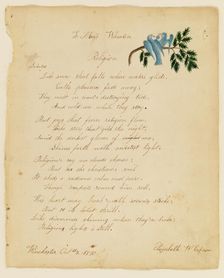 To Miss
Religion
Like snow that falls where waters glide
Earth's pleasures fade away;
They melt in time's destroying tide,
And cold are while they stay
But joys that from religion flow
Like stars that gild the night
Amid the darkest gloom of
Shine forth with sweetest light
Religion's ray no clouds obscure
But o'er the
It sheds a radiance calm and pure
Though tempests round him roll
His heart may break with sorrow's stroke
But to its latest thrill
Like diamonds shining when they're broke
Religion lights it still.
Winchester Oct
Elizabeth